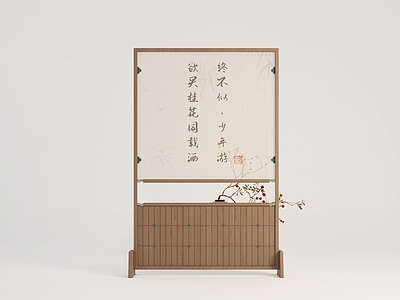 欲买桂花同载酒
终不似·少年游